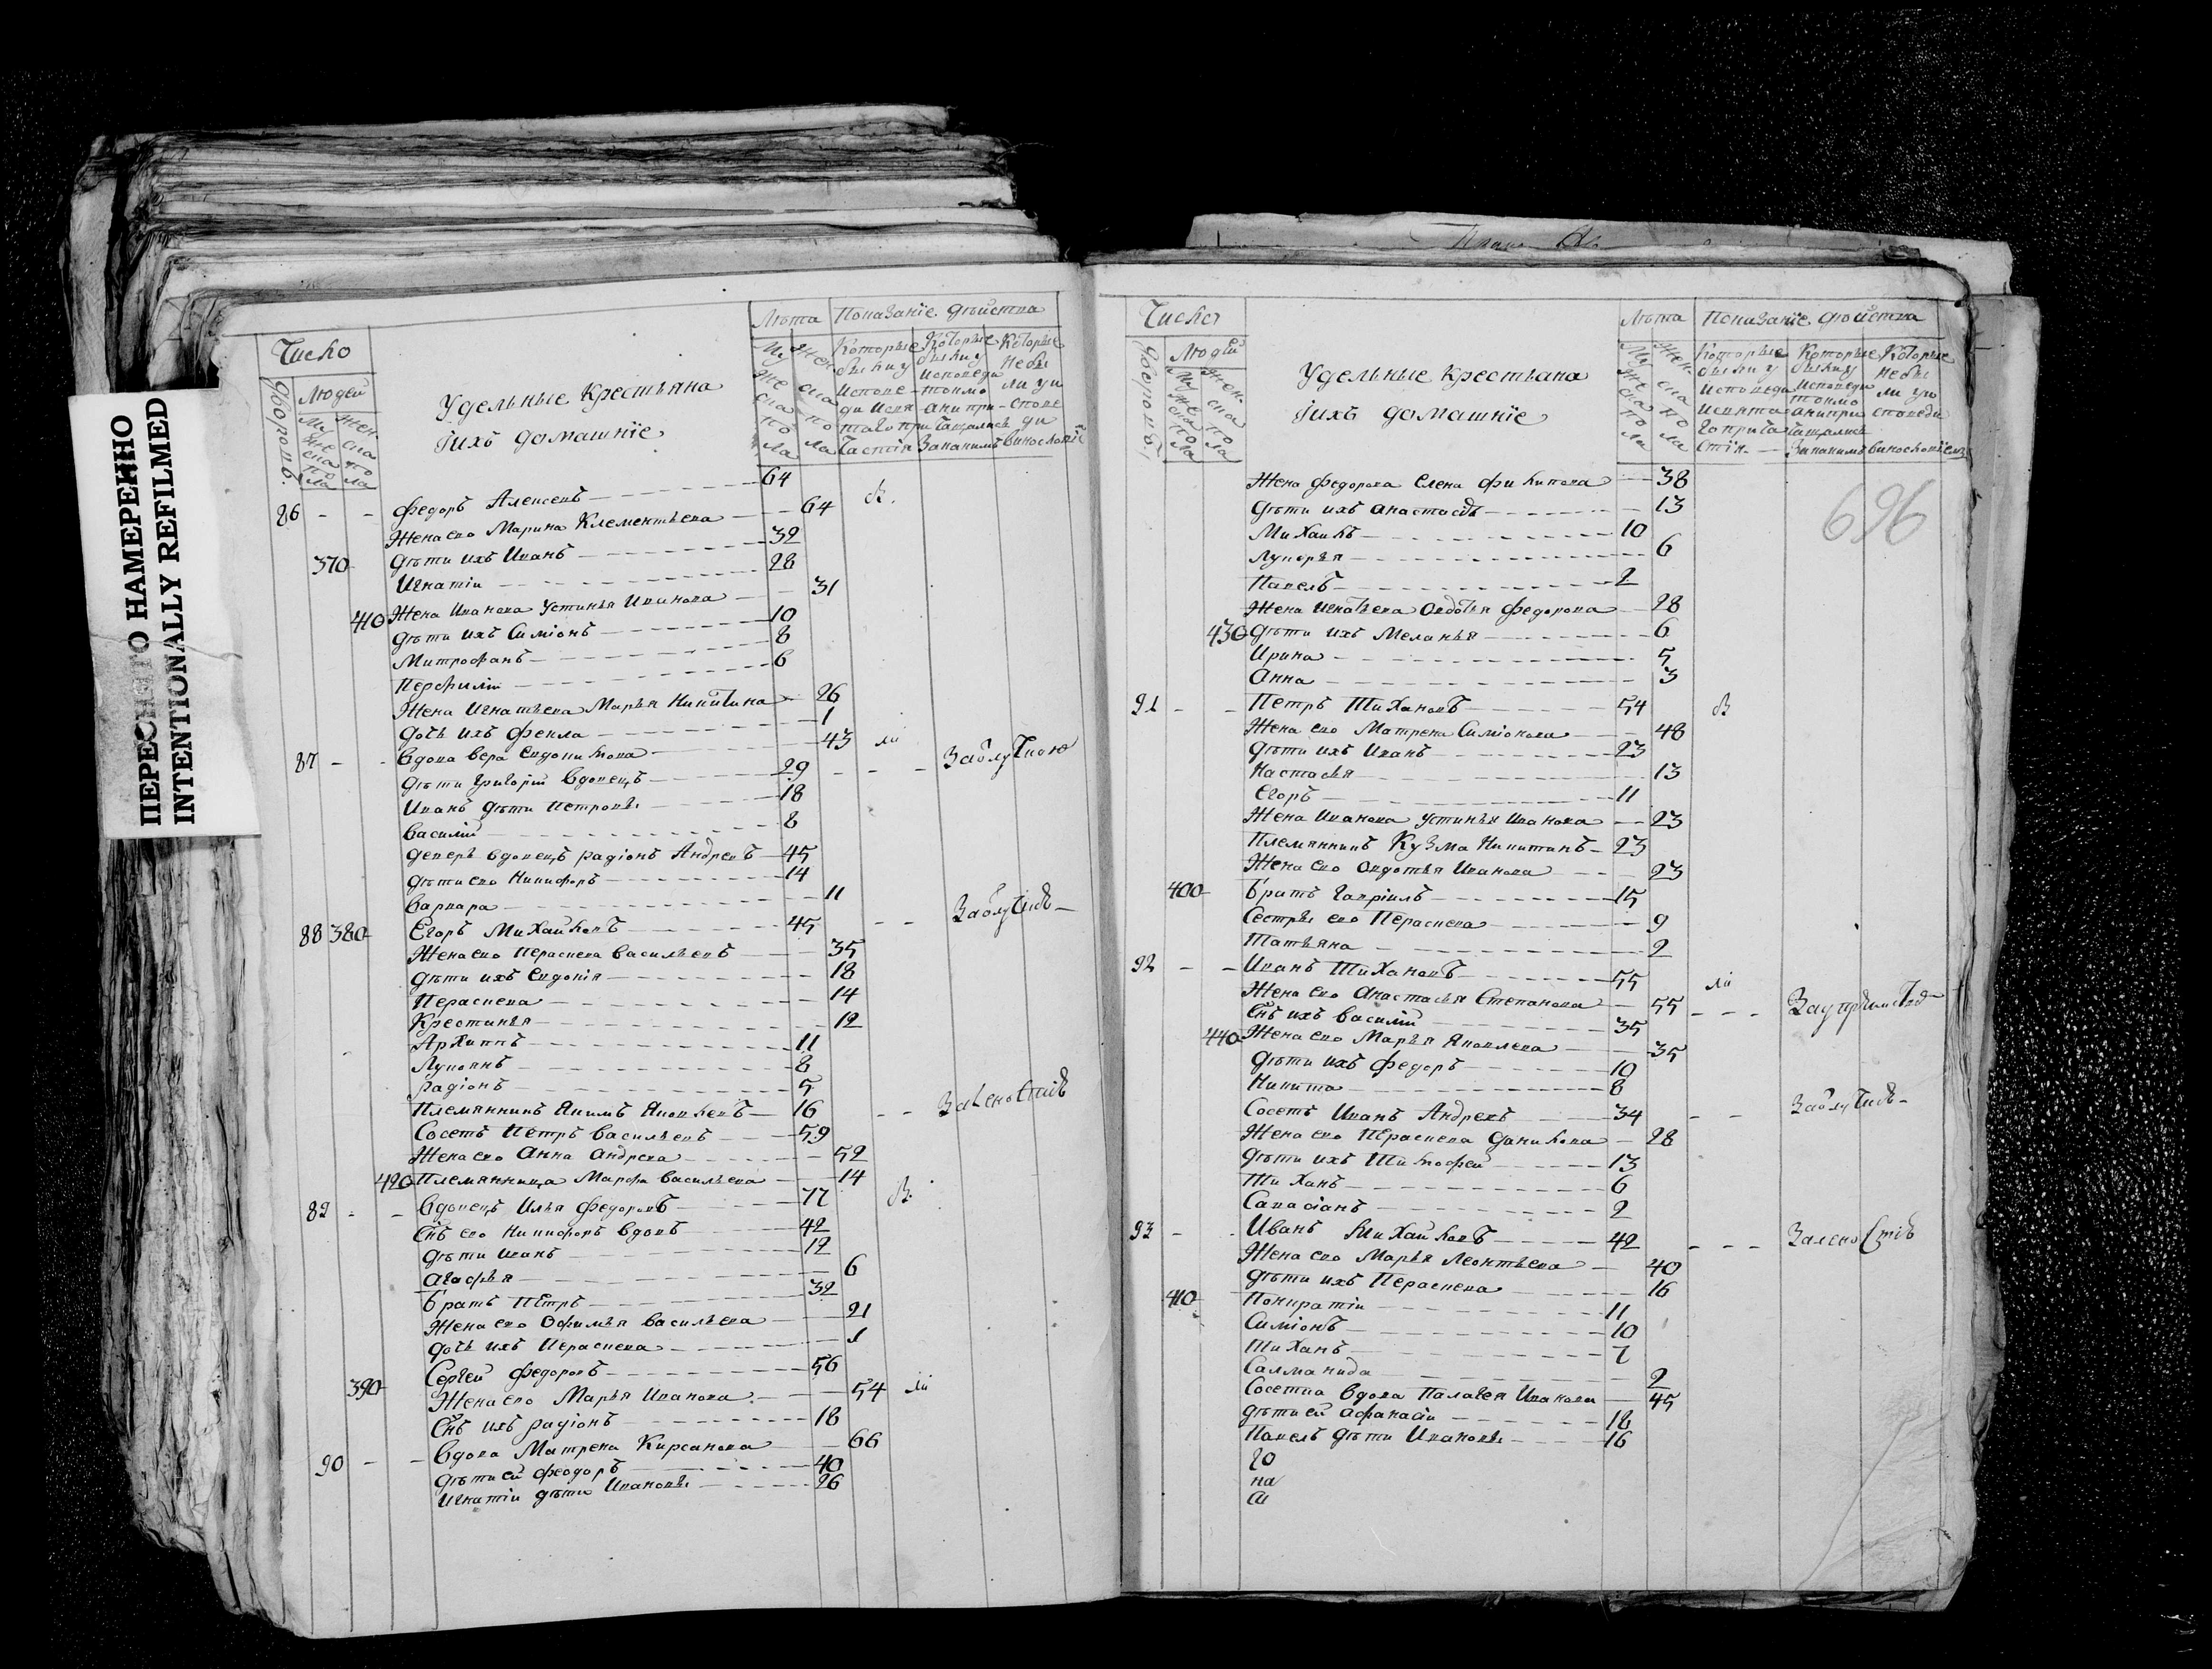 ПЕРЕСНЯТО НАМЕРЕННО
INTENTIONALLY REFILMED
Число
Дворовъ.
Людей
Мужеска пола
Женска пола
Удельные Крестьяна
ихъ домашніе
Лѣта
Мужеска пола
Женска пола
Показаніе дѣйства
Которые были у исповеди и святаго причастія
Которые были у исповеди токмо а не причащались
Которые не были у исповеди
86 - - Федоръ Алексевъ 64 в.
Жена ево Марина Клементьева 64
370 Дѣти ихъ Иванъ 32
Игнатіи 28
410 Жена Иванова Устинья Иванова 31
Дѣти ихъ Симіонъ 10
Митрофанъ 8
Перфилій 6
Жена Игнатьева Марья Никитина 26
Дочь ихъ Фекла 1
87 - - Вдова Вера 43
Дѣти Григорій Вдовецъ 29
Иванъ дѣти Петровы 18
Василій 8
Деверь вдовецъ Радіонъ Андревъ 45
Дѣти ево Никифоръ 14
Варвара 11
88 380 Егоръ Михайловъ 45
Жена ево Пераскева Васильевъ 35
Дѣти ихъ Евдокія 18
Пераскева 14
Крестинья 12
Архиппъ 11
Лукоянъ 8
Радіонъ 5
Племянникъ Якимъ Яковлевъ 16
Сосетъ Петръ Васильевъ 59
Жена ево Анна Андрева 52
420 Племянница Марфа Васильева 14
89 - - Вдовецъ Илья Федоровъ 77 в.
Снъ ево Никифоръ вдовъ 42
Дѣти Иванъ 12
Агафья 6
Братъ Петръ 32
Жена ево Офимья Васильева 21
Дочь ихъ Пераскева 1
Сергей Федоровъ 56
390 Жена ево Марья Иванова 54
Снъ ихъ Радіонъ 18
90 - - Вдова Матрена Кирсанова 66
Дѣти ей Феодоръ 40
Игнатіи дѣти Ивановы 26
Числа
Дворовъ
Людей
Мужеска пола
Женска пола
Удельные Крестьана
ихъ домашніе
Лѣта
Мужеска пола
Женска пола
Показаніе дѣйства
Которые были у исповеди и святаго причастія
Которые были у исповеди токмо а не причащались
Которые не были у исповеди
696
Жена Федорова Елена Филипова 38
Дѣти ихъ Анастасія 13
Михаилъ 10
Лукерья 6
Павелъ 2
Жена Игнатьева Овдотья Федорова 28
430 Дѣти ихъ Меланья 6
Ирина 5
Анна 3
91 - - Петръ Тихановъ 54 в
Жена ево Матрена Симіонова 48
Дѣти ихъ Иванъ 23
Настасья 13
Егоръ 11
Жена Иванова Устинья Иванова 23
Племянникъ Кузма Никитинъ 23
Жена ево Овдотья Иванова 23
400 Братъ Гавріилъ 15
Сестры ево Пераскева 9
Татьяна 2
92 - - Иванъ Тихановъ 55
Жена ево Анастасья Степанова 55
Снъ ихъ Василій 35
440 Жена ево Марья Яковлева 35
Дѣти ихъ Федоръ 10
Никита 8
Сосетъ Иванъ Андревъ 34
Жена ево Пераскева Данилова 28
Дѣти ихъ Тимофей 13
Тиханъ 6
Савасіанъ 2
93 - - Иванъ Михайловъ 42
Жена ево Марья Леонтьева 40
Дѣти ихъ Пераскева 16
410 Понкратіи 11
Симіонъ 10
Тиханъ 7
Салманида 2
Сосетка вдова Палагея Иванова 45
Дѣти ей Афанасіи 18
Павелъ дѣти Ивановы 16
го
на
аі